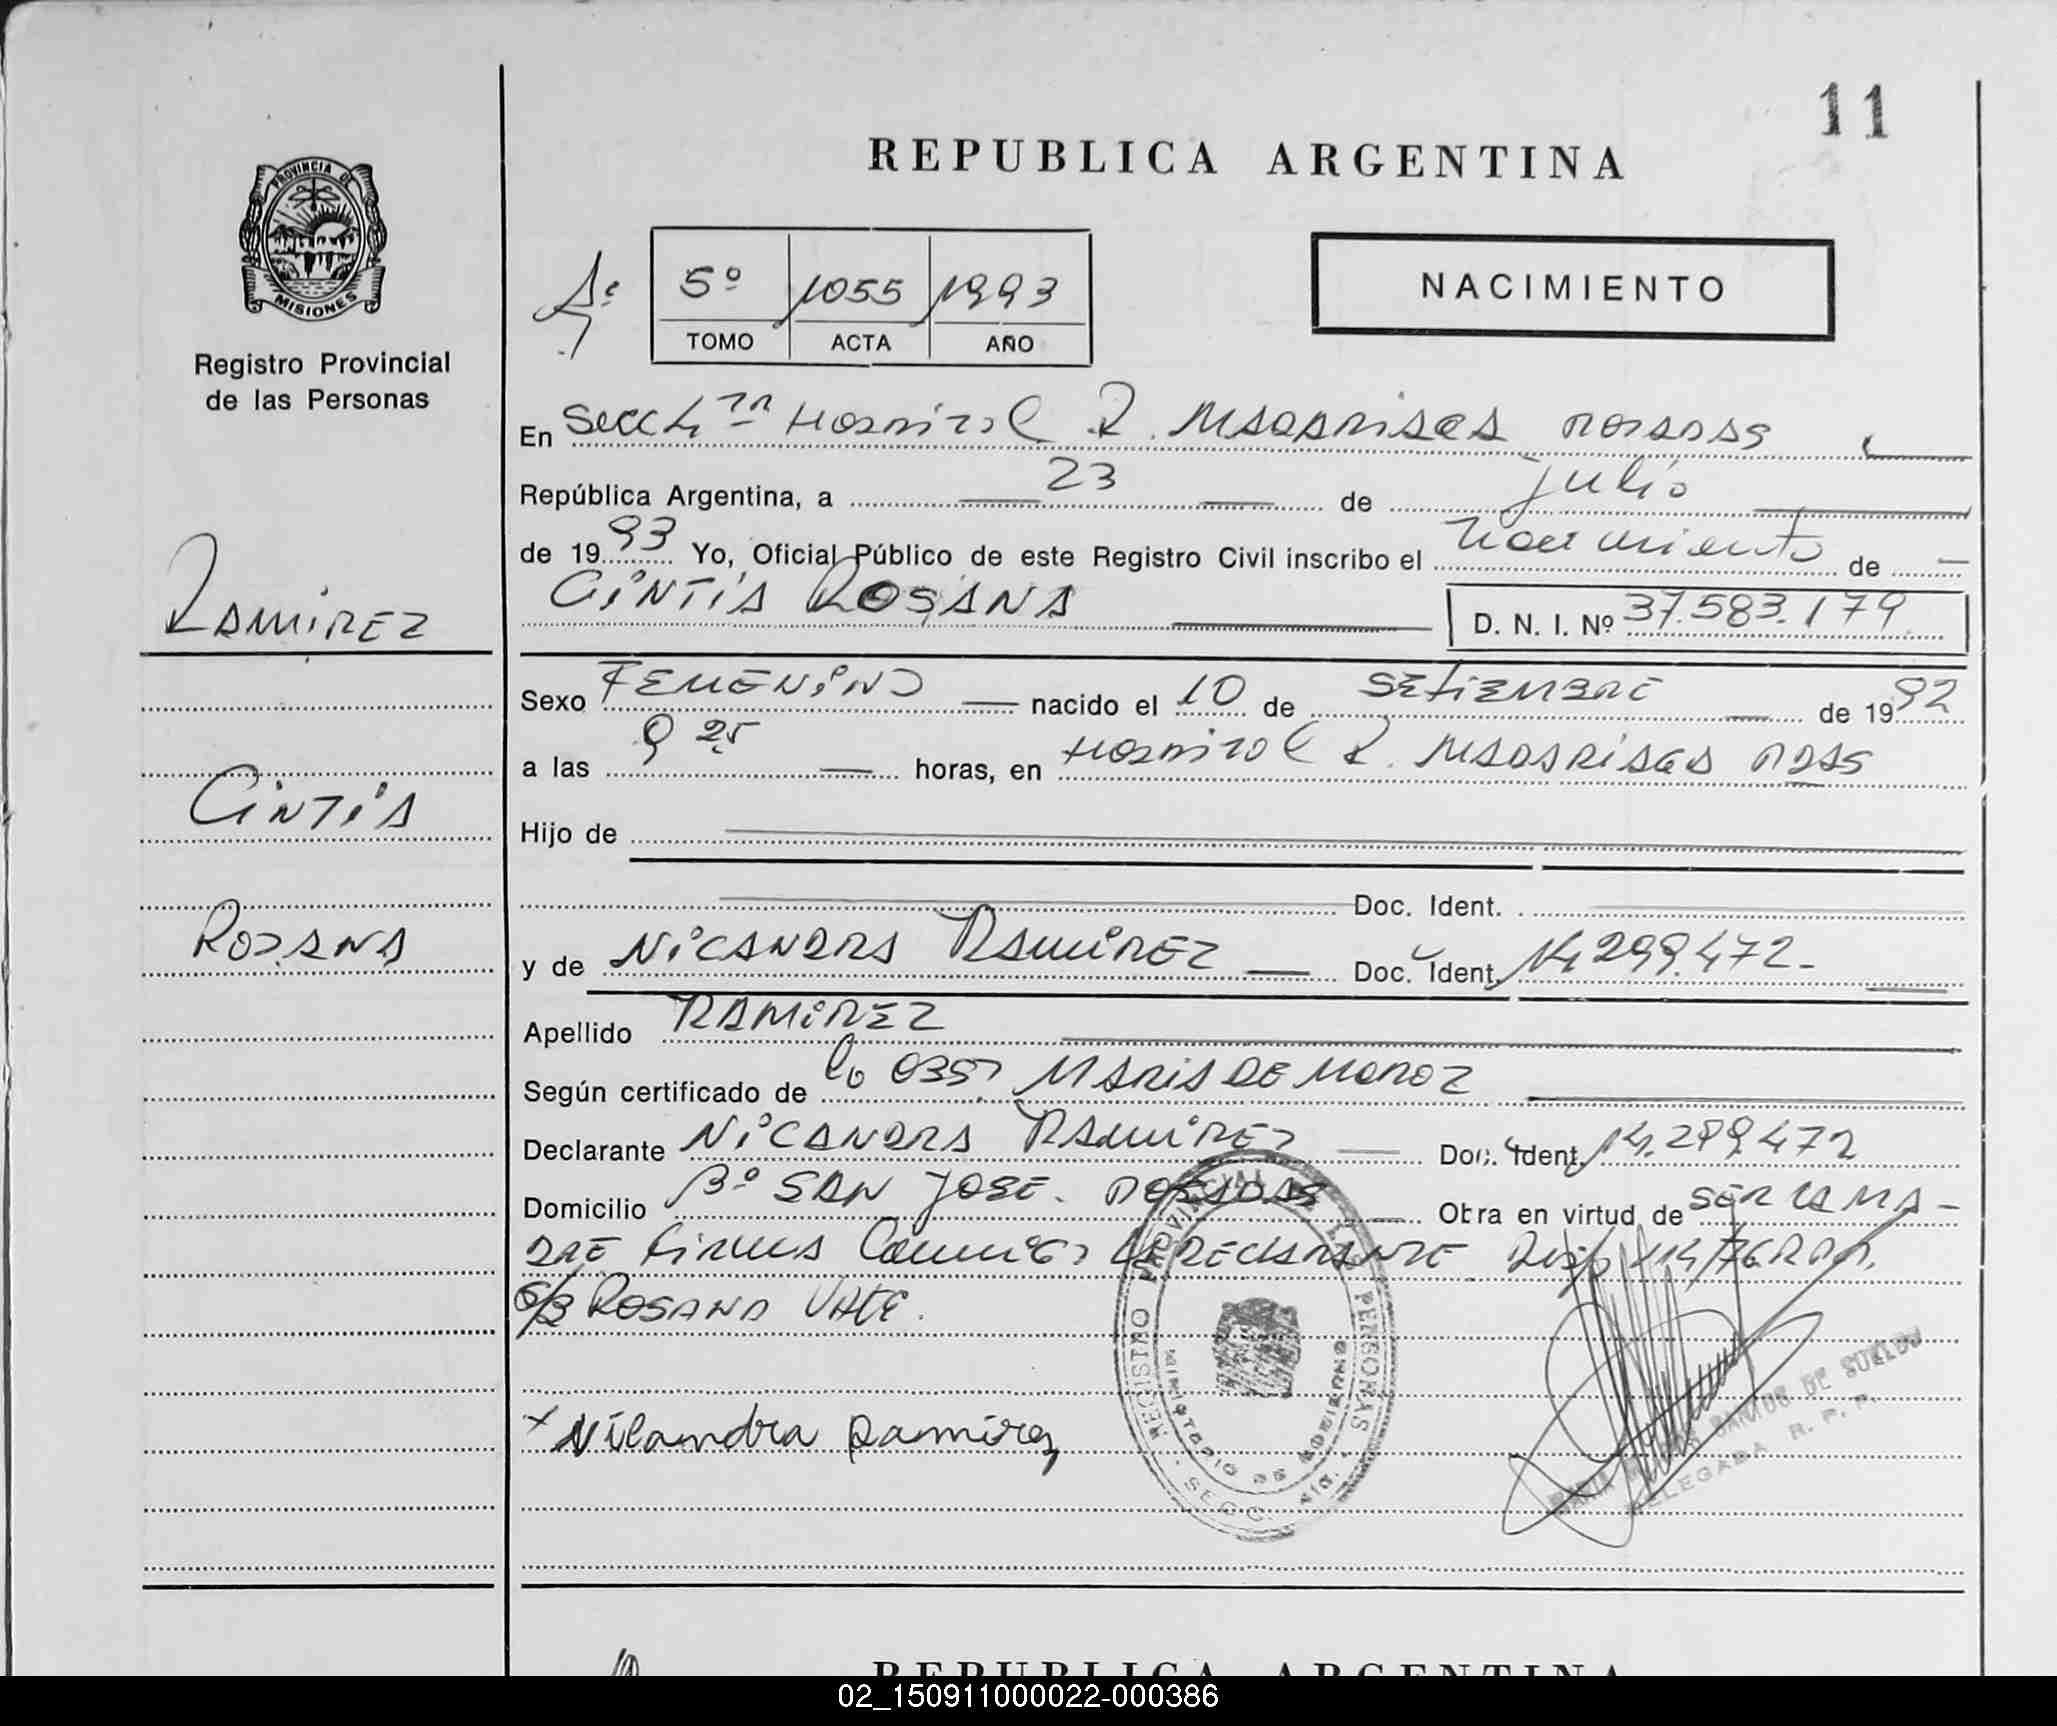 11
REPUBLICA ARGENTINA
PROVINCIA DE
MISIONES
Registro Provincial
de las Personas
5º 1055 1993
TOMO ACTA AÑO
NACIMIENTO
En Secc 7ª Hospital R. Madariaga Posadas
República Argentina, a 23 de julio
de 1993 Yo, Oficial Público de este Registro Civil inscribo el nacimiento de
CINTIA ROSANA D. N. I. Nº 37.583.179
RAMIREZ
CINTIA
ROSANA
Sexo FEMENINO nacido el 10 de SETIEMBRE de 1992
a las 9 25 horas, en Hospital R. MADARIAGA PDAS
Hijo de
Doc. Ident.
y de NICANDRA RAMIREZ Doc. Ident. 14.299.472-
Apellido RAMIREZ
Según certificado de MARIA DE MOROZ
Declarante NICANDRA RAMIREZ Doc. Ident. 14.299.472
Domicilio Bº SAN JOSE. POSADAS Obra en virtud de SER LA MA-
DRE firma LA DECLARANTE 114/76
ROSANA VALE.
x Nicandra Ramirez
REGISTRO PROVINCIAL DE LAS PERSONAS
MINISTERIO DE GOBIERNO
SECC.
SANTOS DE
DELEGADA R. P. P.
REPUBLICA ARGENTINA
02_150911000022-000386